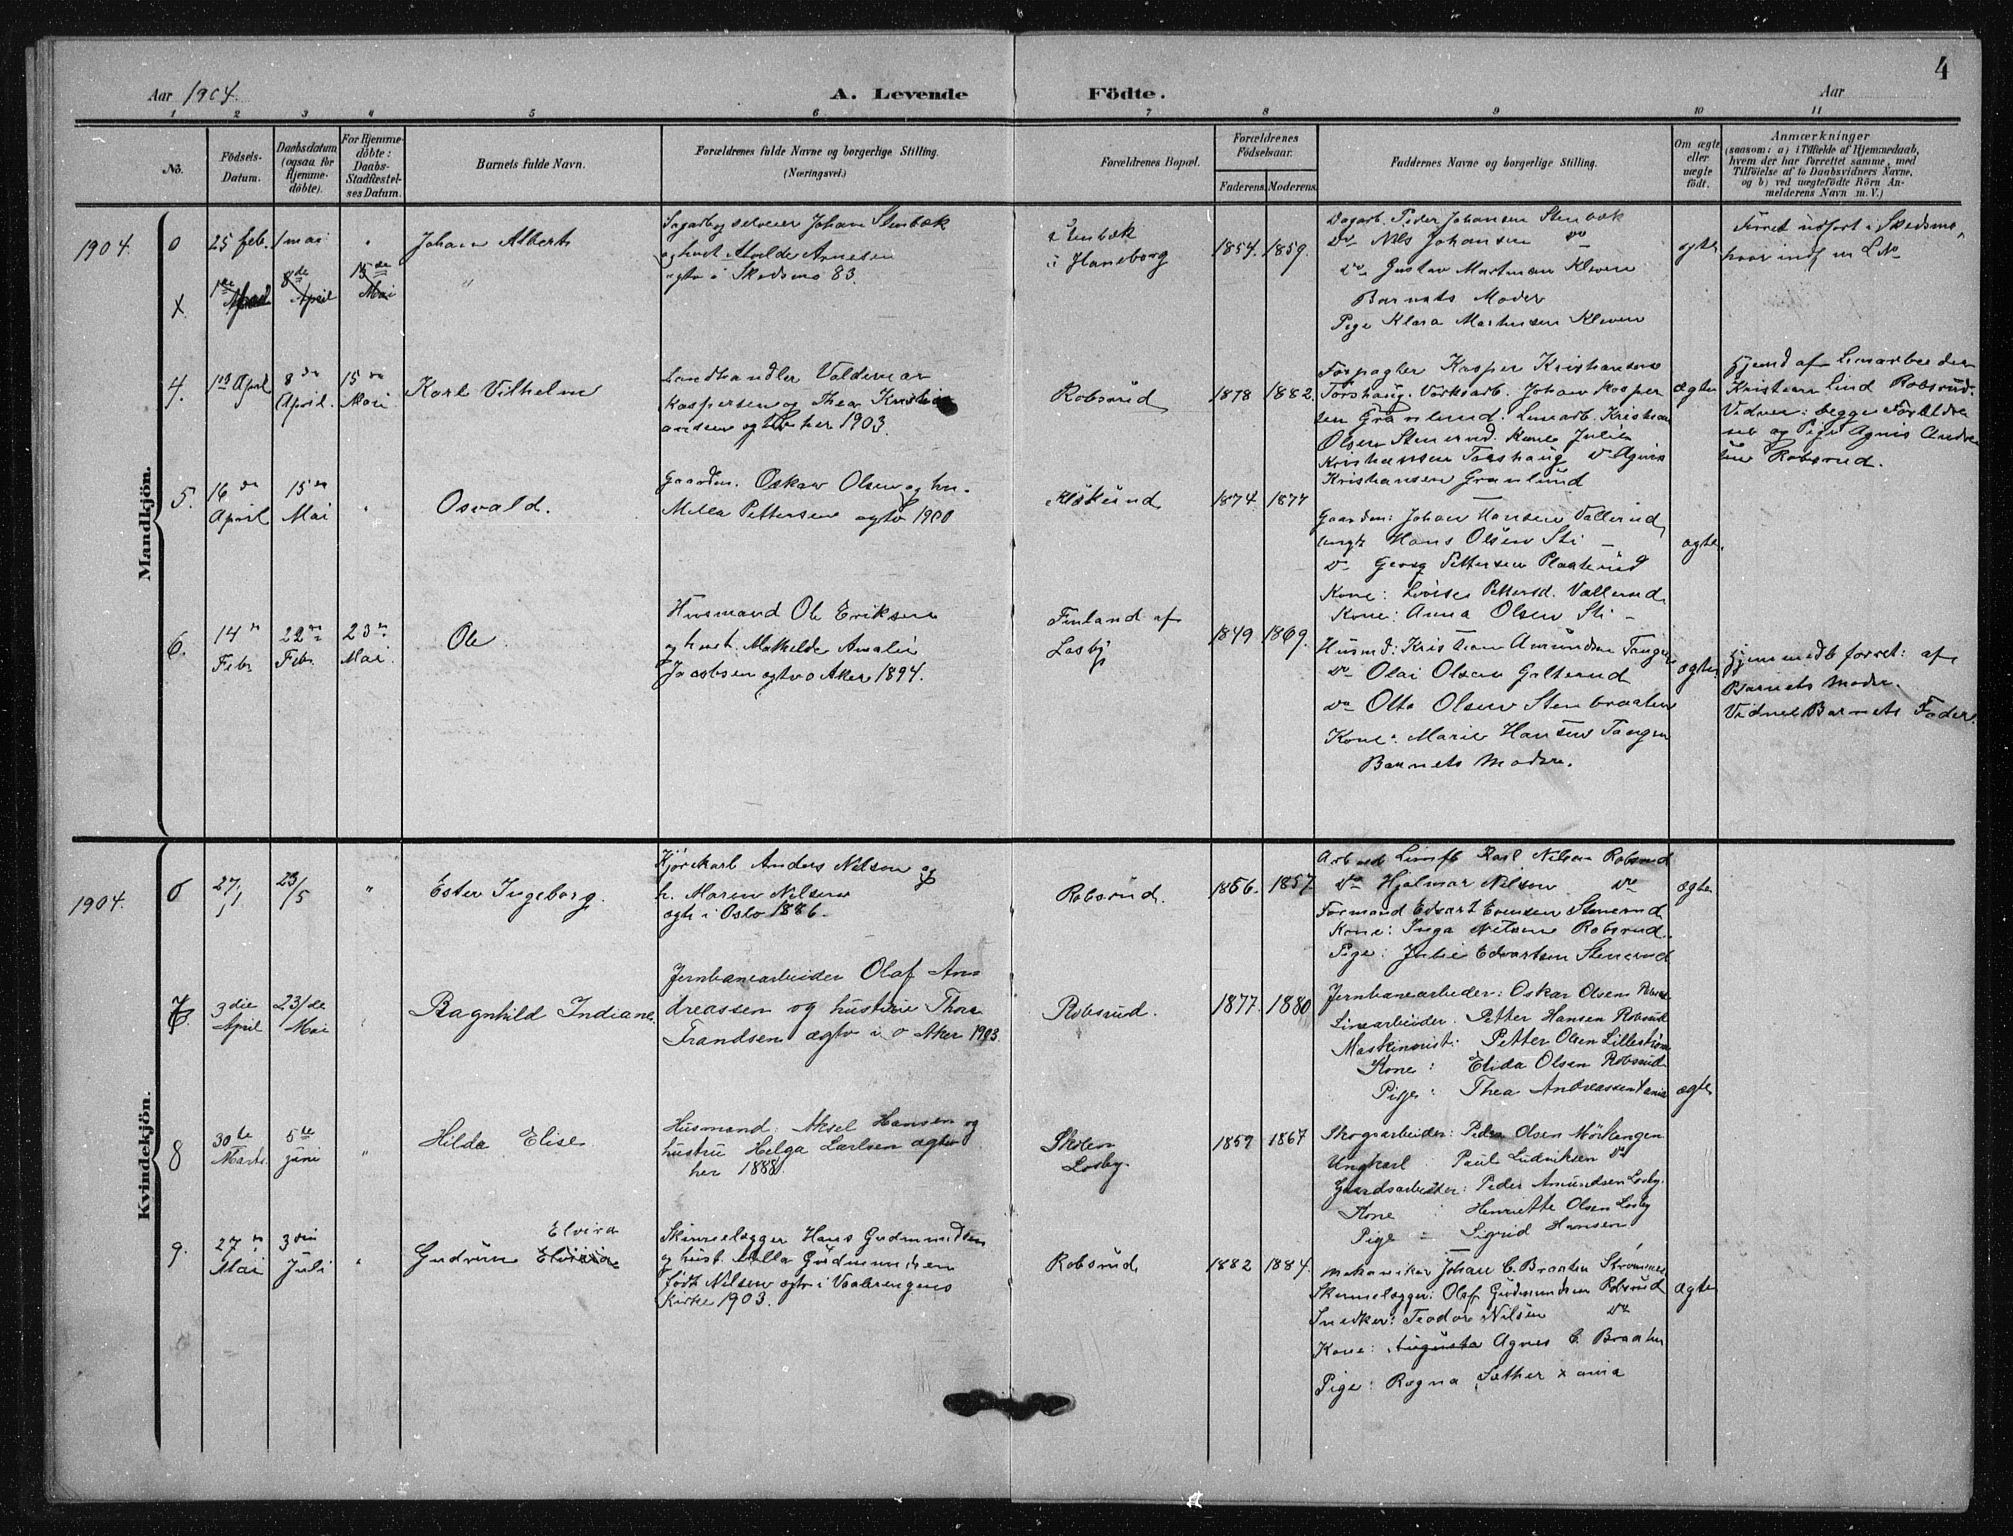 4
Aar 1904.
A. Levende
Födte.
Aar
1 2 3 4 5 6 7 8 9 10 11
No.
Födsels-
Datum.
Daabsdatum
(ogsaa for
Hjemme-
döbte).
For Hjemme-
döbte:
Daabs-
Stadfæstel-
ses Datum.
Barnets fulde Navn.
Forældrenes fulde Navne og borgerlige Stilling.
(Næringsvei.)
Forældrenes Bopæl.
Forældrenes
Födselsaar.
Faderens. Moderens.
Faddernes Navne og borgerlige Stilling.
Om ægte
eller
uægte
födt.
Anmærkninger
(saasom: a) i Tilfælde af Hjemmedaab,
hvem der har forrettet samme, med
Tilföielse af to Daabsvidners Navne,
og b) ved uægtefödte Börn An-
melderens Navn m. V.)
Mandkjön.
1904. 0 25 feb. 1 mai " Johan Albert
Johan Stenbæk
og hust. Arnesen
ægtv i Skedsmo 83.
Stenbæk
i Haneborg
1854. 1859.
Dagarb. Peder Johansen Stenbæk
Do Nils Johansen Do
Do Gustav Martinsen Kleven
Barnets Moder
Pige Klara Mathisen Kleven
ægte
i Skedsmo,
x 1ste April 8de April 15de Mai "
4. 1ste April 8de April. 15de Mai.
Karl Vilhelm
Landhandler Valdemar
Kaspersen og Thea Kristi
ansen ægtv her 1903.
Robsrud
1878 1882.
Kasper Kristiansen
Torshaug. Værksarb. Johan Kasper
sen Granlund. Limarb. Kristian
Olsen Stenerud. Kone Julie
Kristiansen Torshaug Do Agnes
Kristiansen Granlund
ægte
Hjemd af Limarbeider
Kristian Lind Robsrud.
Vidner: begge Forældre
ne og Pige Agnes Andre
sen Robsrud.
5. 16de April 15de Mai "
Osvald.
Gaardm. Oskar Olsen og hu.
Milla Pettersen ægtv 1900
1874. 1877
Gaardm: Johan Hansen Vallerud
ungk Hans Olsen Sti —
Do Georg Pettersen
Kone: Lovise Pettersd. Vallerud
Kone: Anna Olsen Sti —
ægte.
6. 14de Febr 22de Febr. 23de Mai.
Ole.
Husmand Ole Eriksen
og hust. Mathilde Amalie
Jacobsen ægtv Ø Aker 1894.
Finland af
Losby
1849 1869.
Husmd: Kristian Amundsen Tangen
Do Olai Olsen Galterud
Do Otto Olsen Stenbraaten
Kone: Marie Hansen Tangen
Barnets Moder.
ægte
Hjemmedb forret: af
Barnets Moder.
Vidne Barnets Fader.
Kvindekjön.
1904. 6 27/1 23/5 " Ester Ingeborg.
Kjörekarl Anders Nilsen og
h. Maren Nilsen
ægtv i Oslo 1886.
Robsrud.
1856. 1857.
Karl Nilsen Robsrud
Do Hjalmar Nilsen Do
Formand Edvart Evensen Stenerud
Kone: Inga Nilsen Robsrud.
Pige: Julie Edvartsen Stenerud
ægte
7 3die April 23/de Mai
Ragnhild Indiane.
Jernbanearbeider Olaf An-
dreassen og hustrue Thora
Frandsen ægtv i Ø Aker 1903.
Robsrud.
1877. 1880
Jernbanearbeder: Oskar Olsen
Limarbeider. Petter Hansen Robsrud
Maskinvist: Petter Olsen Lilleström
Kone: Elida Olsen Robsrud
Pige: Thea Andreassen
ægte
8 30te Marts. 5te juni "
Hilda Elise
Husmand: Aksel Hansen og
hustru Helga Larsen ægtv
her 1888
Skolen
Losby.
1857 1867
Skograrbeider: Peder Olsen Mörkengen
Ungkarl : Paul Ludviksen Do
Gaardsarbeider: Peder Amundsen Losby.
Kone : Henriette Olsen Losby
Pige : Sigrid Hansen
9. 27de Mai 3die Juli "
Elvira
Gudrun Elvira
Skinnelægger Hans Gudmundsen
og hust. Milla Gudmundsen
født Nilsen ægtv i Vaalerengens
Kirke 1903.
Robsrud
1882 1884.
Mekaniker Johan C. Braaten Strömmen
Skinnelægger: Olaf Gudmundsen Robsrud
Snedker: Teodor Nilsen Do
Kone: Augusta Agnes C. Braaten
Pige: Ragna Sæther
ægte